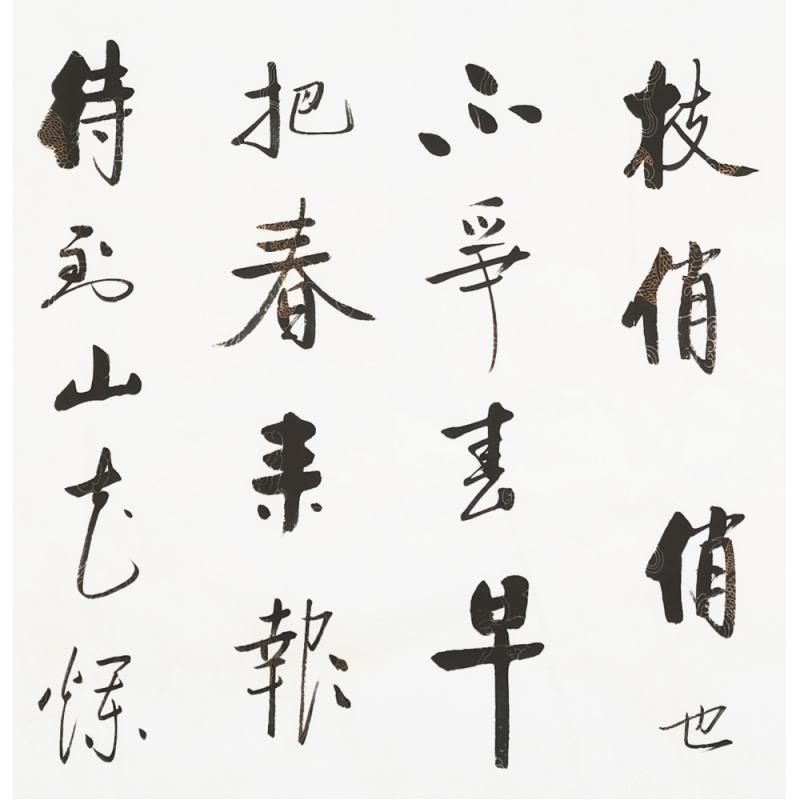 枝俏俏也
不爭春早
把春来報
待到山花爛